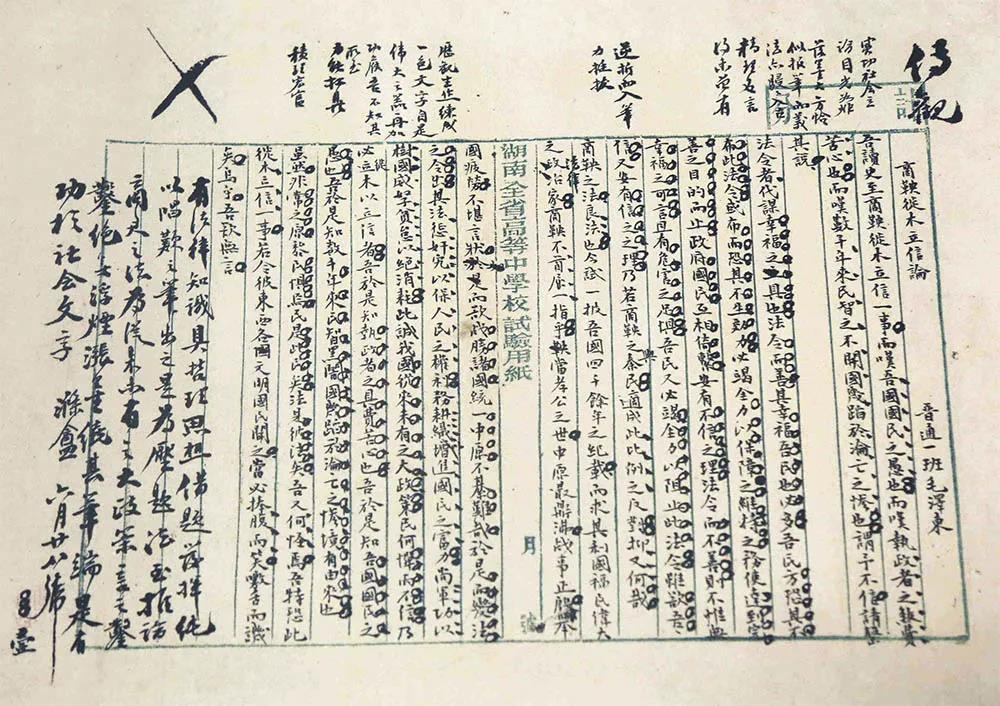 傳觀
實切社會立
論目光如炬
落墨大方恰
似報筆而義
法亦駸駸入古
精理名言
故未曾有
逆折而入筆
力挺拔
歷觀生作練成
一色文字自是
偉大之器再加
功候吾不知其
所至
力能扛鼎
積理宏富
商鞅徙木立信論
普通一班毛澤東
吾讀史至商鞅徙木立信一事而嘆吾國國民之愚也而嘆執政者之煞費
苦心也而嘆數千年來民智之不開國幾蹈於淪亡之慘也謂予不信請罄
其說
法令者代謀幸福之具也法令而善其幸福吾民也必多吾民方恐其不
布此法令或布而恐其不生效力必竭全力以保障之維持之務使達到完
善之目的而止政府國民互相倚繫安有不信之理法令而不善則不惟無
幸福之可言且有危害之足懼吾民又必竭全力以阻止此法令雖欲吾
信又安有信之之理乃若商鞅之與秦民適成此比例之反對抑又何哉
商鞅之法良法也今試一披吾國四千餘年之紀載而求其利國福民偉大
之政治家商鞅不首屈一指乎鞅當孝公之世中原鼎沸戰事正殷舉
湖南全省高等中學校試驗用紙
月 號
國疲勞不堪言狀於是而欲戰勝諸國統一中原不綦難哉於是而變法
之令出其法懲奸宄以保人民之權利務耕織增進國民之富力尚軍功以
樹國威孥貧怠以絕消耗此誠我國從來未有之大政策民何憚而不信乃
必徙木以立信者吾於是知執政者之具費苦心也吾於是知吾國國民之
愚也吾於是知數千年來民智黑闇國幾蹈於淪亡之慘境有由來也
雖然非常之原黎民懼焉民是此民矣法是彼法矣吾又何怪焉吾特恐此
徙木立信一事若令彼東西各國文明國民聞之當必捧腹而笑噭舌而譏
矣烏乎吾欲無言
有法律知識具哲理思想借題發揮純
以唱歎之筆出之是為壓題法至推論
商君之法為從來未有之大政策言之鑿
鑿絕無浮煙漲墨繞其筆端是有
功於社會文字 滌盦 六月廿八號